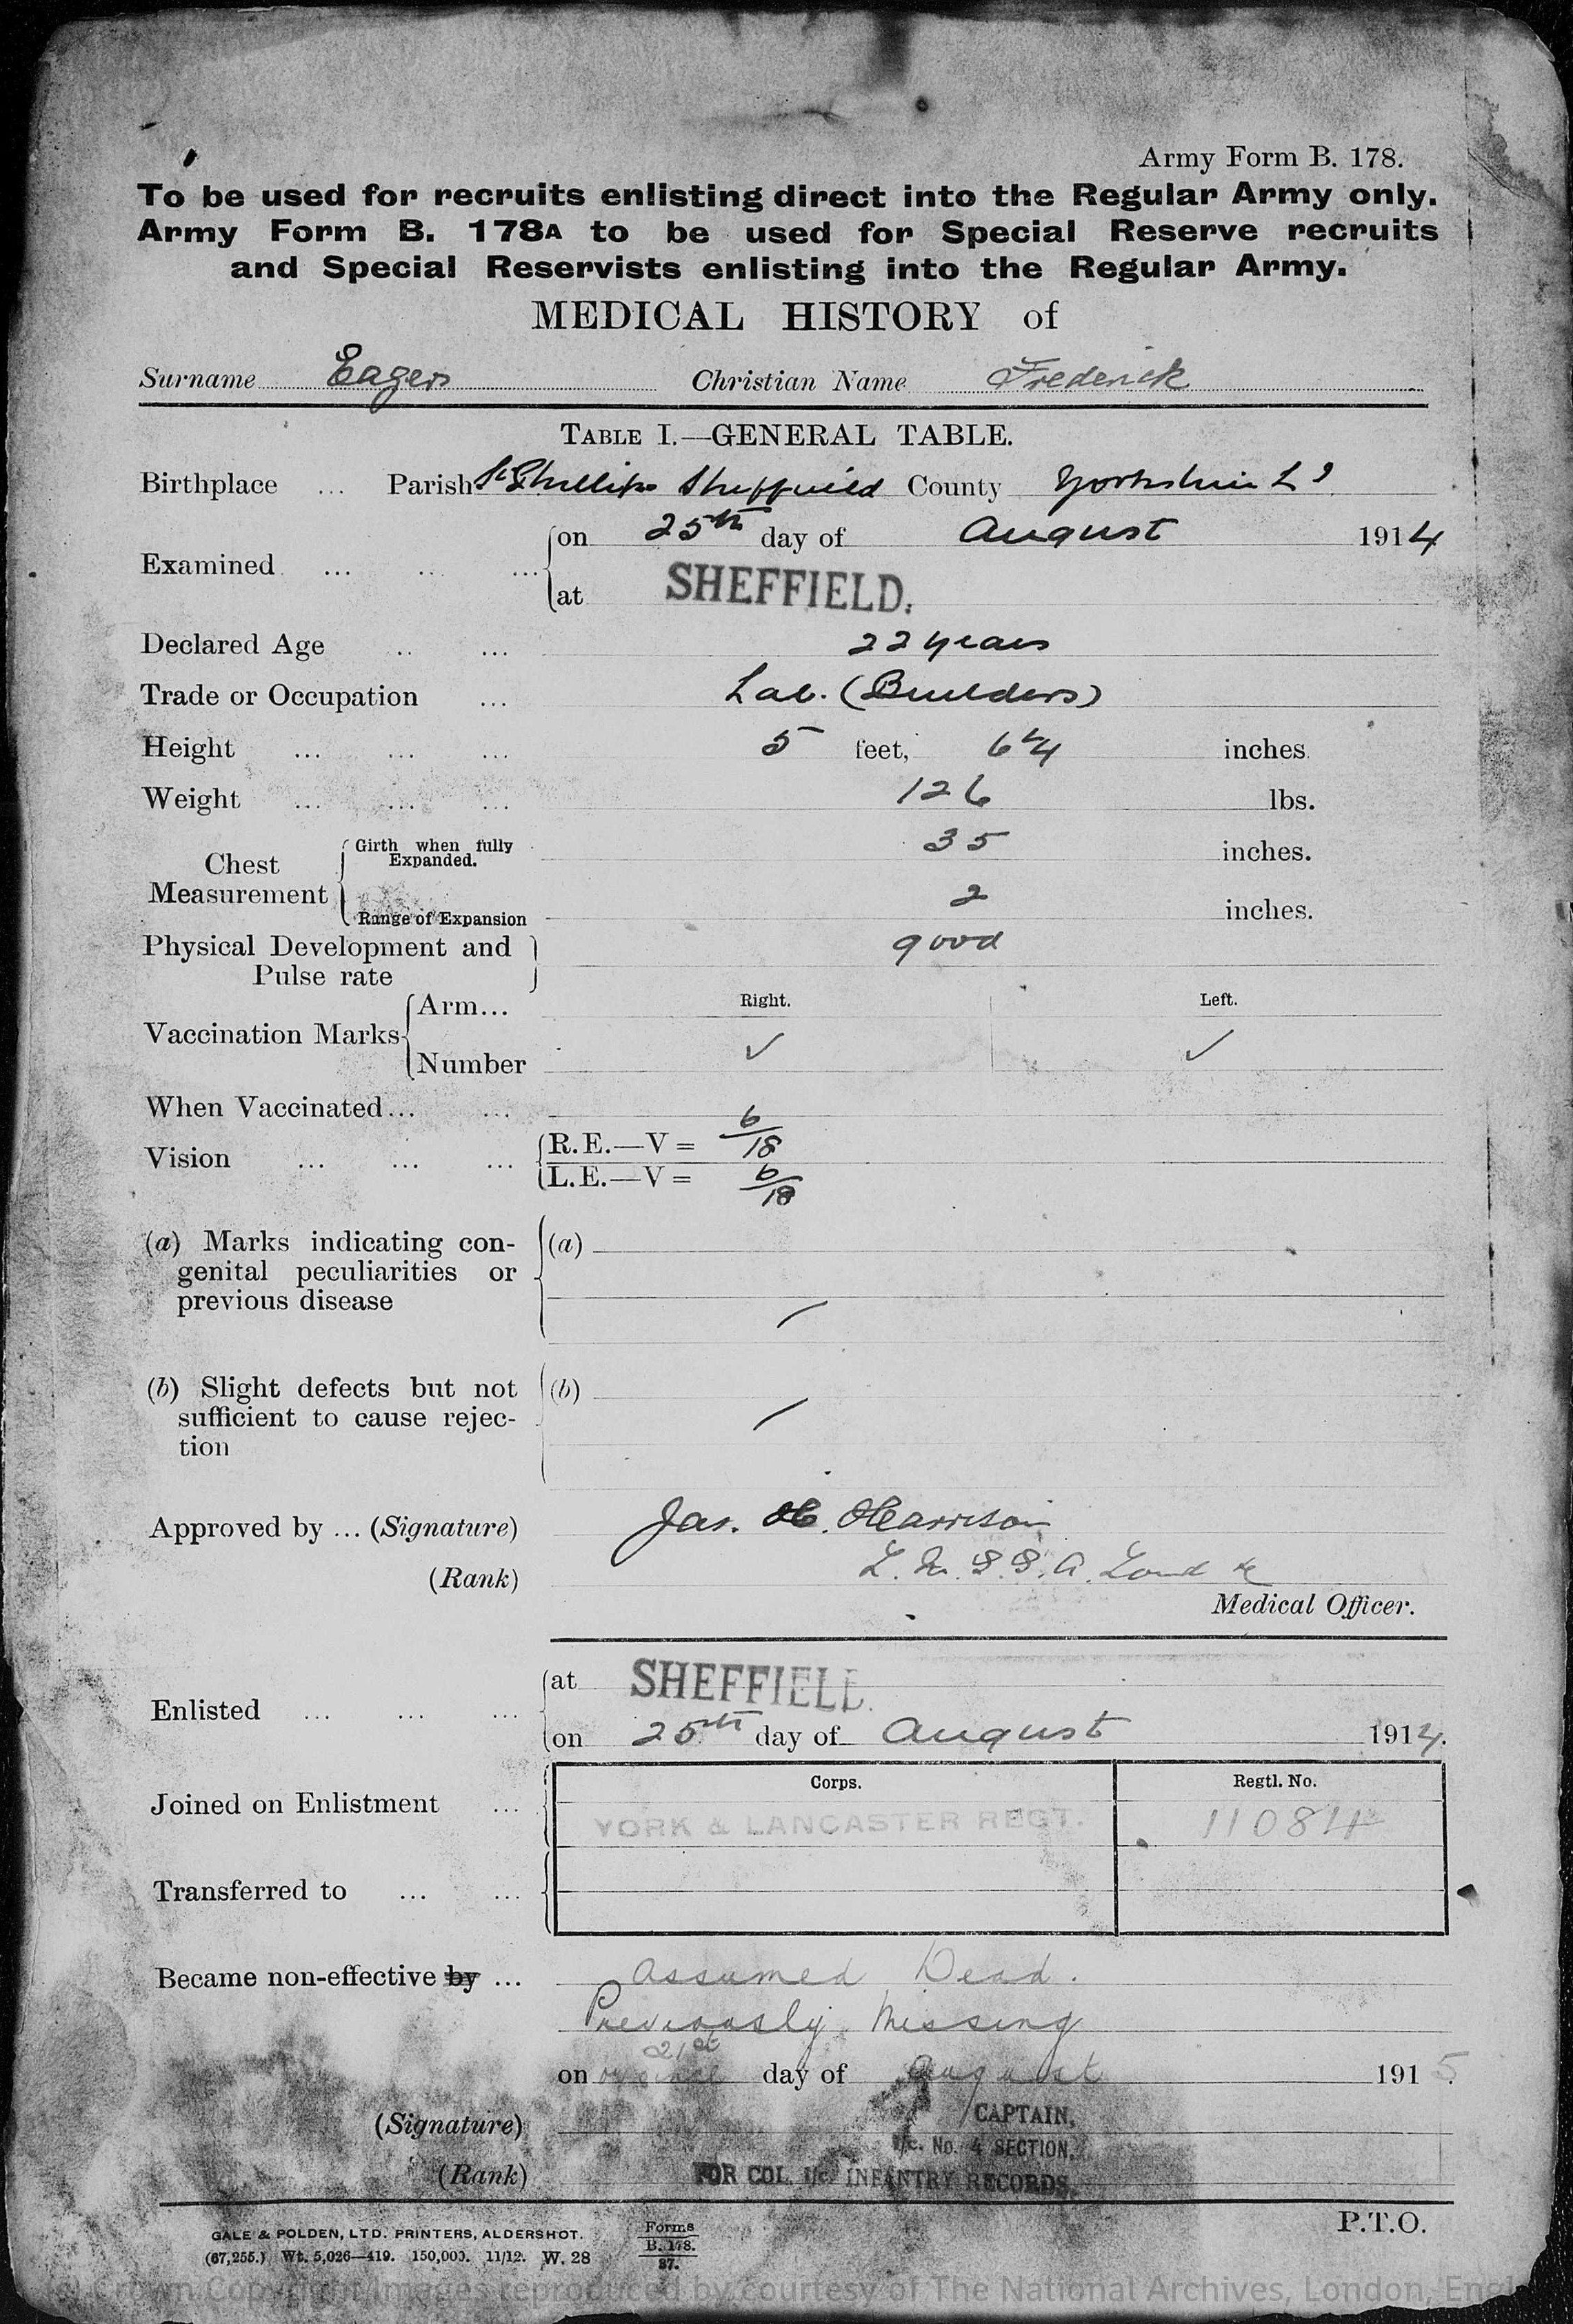 Army Form B. 178.
To be used for recruits enlisting direct into the Regular Army only.
Army Form B. 178A to be used for Special Reserve recruits
and Special Reservists enlisting into the Regular Army.
MEDICAL HISTORY of
Surname Eagers Christian Name Frederick
TABLE I.—GENERAL TABLE.
Birthplace ... Parish St Phillips Sheffield County Yorkshire
Examined ... on 25th day of August 1914
at SHEFFIELD.
Declared Age ... 22 years
Trade or Occupation ... Lab. (Builders)
Height ... 5 feet, 6 1/4 inches
Weight ... 126 lbs.
Chest Measurement
Girth when fully Expanded. 35 inches.
Range of Expansion 2 inches.
Physical Development and Pulse rate good
Vaccination Marks
Arm... Right. Left.
Number ✓ ✓
When Vaccinated...
Vision ... R.E.—V = 6/18
L.E.—V = 6/18
(a) Marks indicating con-
genital peculiarities or
previous disease
(a)
(b) Slight defects but not
sufficient to cause rejec-
tion
(b)
Approved by ... (Signature) Jas. H. Harrison
(Rank) L. M. S. S. A. Lond
Medical Officer.
Enlisted ... at SHEFFIELD.
on 25th day of August 1914.
Corps. Regtl. No.
Joined on Enlistment ... YORK & LANCASTER REGT. 11084
Transferred to ...
Became non-effective by ... Assumed Dead.
Previously Missing
21st
on or since day of August 1915.
(Signature) CAPTAIN,
i/c. No. 4 SECTION,
(Rank) FOR COL. i/c. INFANTRY RECORDS.
P.T.O.
GALE & POLDEN, LTD. PRINTERS, ALDERSHOT.
(67,255.) Wt. 5,026—419. 150,000. 11/12. W. 28
Forms
B. 178.
37.
(c) Crown Copyright/Images reproduced by courtesy of The National Archives, London, Engl